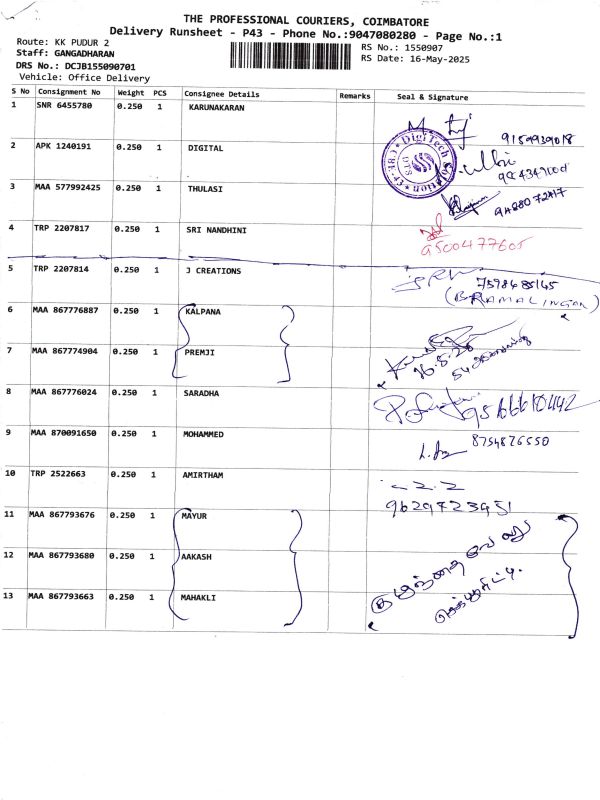 THE PROFESSIONAL COURIERS, COIMBATORE
Delivery Runsheet - P43 - Phone No.:9047080280 - Page No.:1
Route: KK PUDUR 2
Staff: GANGADHARAN
DRS No.: DCJB155090701
Vehicle: Office Delivery
RS No.: 1550907
RS Date: 16-May-2025
S No Consignment No Weight PCS Consignee Details Remarks Seal & Signature
1 SNR 6455780 0.250 1 KARUNAKARAN
2 APK 1240191 0.250 1 DIGITAL
DigiTech Solution
3 MAA 577992425 0.250 1 THULASI
4 TRP 2207817 0.250 1 SRI NANDHINI
9500477605
5 TRP 2207814 0.250 1 J CREATIONS
(B RAMALINGAM)
6 MAA 867776887 0.250 1 KALPANA
7 MAA 867774904 0.250 1 PREMJI
16.5.25
8 MAA 867776024 0.250 1 SARADHA
9566610442
9 MAA 870091650 0.250 1 MOHAMMED
8754876550
10 TRP 2522663 0.250 1 AMIRTHAM
9629723951
11 MAA 867793676 0.250 1 MAYUR
12 MAA 867793680 0.250 1 AAKASH
13 MAA 867793663 0.250 1 MAHAKLI